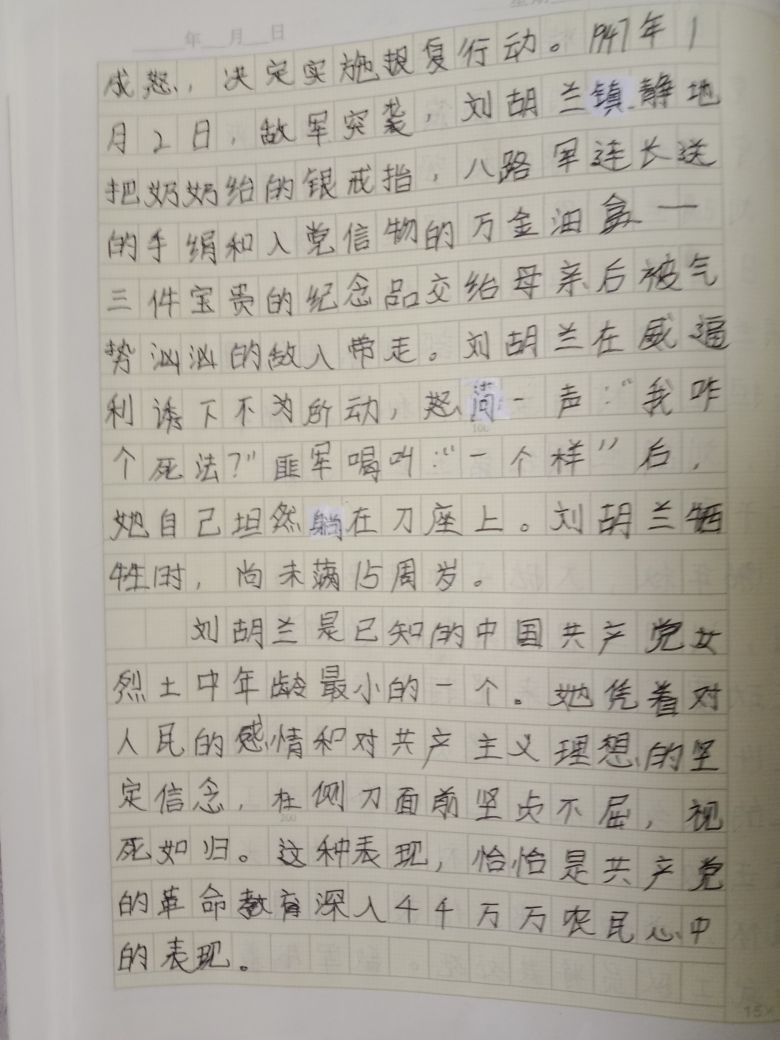 年 月 日
成怒，决定实施报复行动。1947年1
月2日，敌军突袭，刘胡兰镇静地
把奶奶给的银戒指，八路军连长送
的手绢和入党信物的万金油盒一
三件宝贵的纪念品交给母亲后被气
势汹汹的敌人带走。刘胡兰在威逼
利诱下不为所动，怒问一声："我咋
个死法？"匪军喝叫："一个样"后，
她自己坦然躺在刀座上。刘胡兰牺
牲时，尚未满15周岁。
刘胡兰是已知的中国共产党女
烈士中年龄最小的一个。她凭着对
人民的感情和对共产主义理想的坚
定信念，在侧刀面前坚贞不屈，视
死如归。这种表现，恰恰是共产党
的革命教育深入千千万万农民心中
的表现。